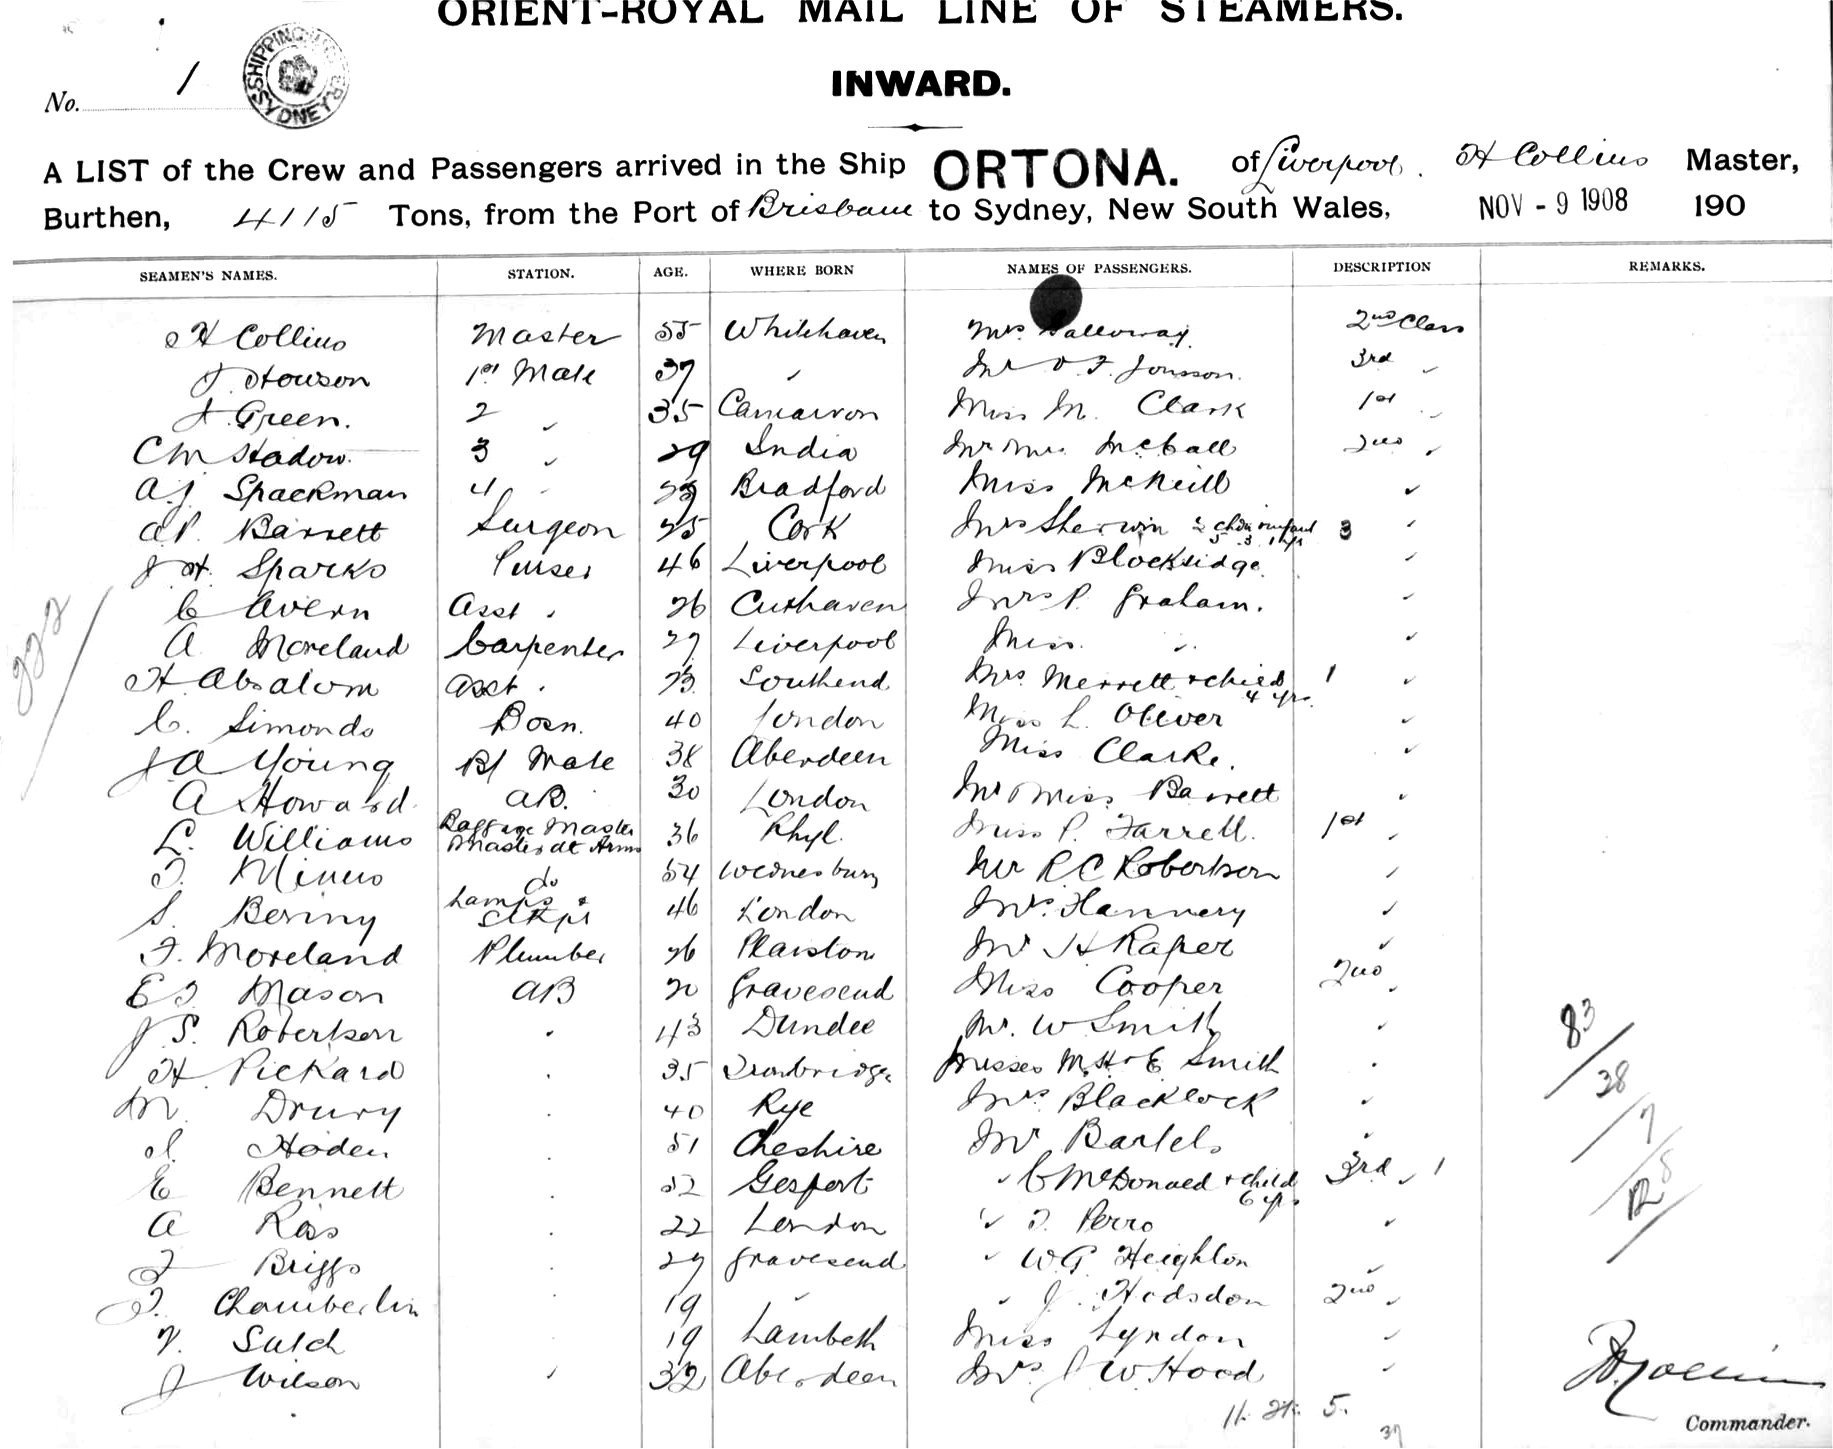 ORIENT-ROYAL MAIL LINE OF STEAMERS.
INWARD.
No. 1
SHIPPING SYDNEY
A LIST of the Crew and Passengers arrived in the Ship ORTONA. of Liverpool. H Collins Master,
Burthen, 4115 Tons, from the Port of Brisbane to Sydney, New South Wales, NOV - 9 1908 190
SEAMEN'S NAMES. STATION. AGE. WHERE BORN NAMES OF PASSENGERS. DESCRIPTION REMARKS.
H Collins Master 55 Whitehaven Mrs Galloway. 2nd Class
J Howson 1st Mate 37 " Mr O. F. Jonsson. 3rd "
J Green. 2 " 35 Carnarvon Miss M. Clark 1st "
C M Hadow. 3 " 29 India Mr Mrs McCall 2nd "
A.J. Spackman 4 " Bradford Miss McNeill "
A.P. Barrett Surgeon 25 Cork Mrs Sherwin 2 chdn infant 3 "
5 3 1 yrs
J H. Sparks Purser 46 Liverpool Miss Blocksidge. "
C Avern Asst " 26 Cuxhaven Mrs P. Graham. "
A Moreland Carpenter 27 Liverpool Miss. " "
H Absalom Asst " 23 Southend Mrs Merrett + child 1 "
4 yrs.
C. Simonds Bosn. 40 London Miss L. Oliver "
J A Young Bs Mate 38 Aberdeen Miss Clarke. "
A Howard AB. 30 London Mr & Miss Barrett "
L. Williams Baggage Master Master at Arms 36 Rhyl. Miss P. Farrell. 1st "
T. Minns do 54 Wednesbury Mr R C Robertson "
S. Benny Lamps & Stkpr 46 London Mrs. Flannery "
F. Moreland Plumber 26 Plaistow Mr H Raper "
E J Mason AB 20 Gravesend Miss Cooper 2nd "
J S. Robertson " 43 Dundee Mr. W Smith "
H Pickard " 35 Misses M. H & E Smith "
M Drury " 40 Rye Mrs. Blacklock "
Hoden " 51 Cheshire Mr Bartels "
E Bennett " 52 Gosport " C McDonald + child 3rd " 1
6 yrs
A Ross " 22 London " J. Perro "
F Briggs " 29 Gravesend " W.G. Heighton "
T. Chamberlin " 19 " " J. Hodsdon 2nd "
Sutch 19 Lambeth Miss Lyndon "
J Wilson " 32 Aberdeen Mrs J W. Hood "
11. 21. 5.
37
222
83
38
7
H. Collins
Commander.